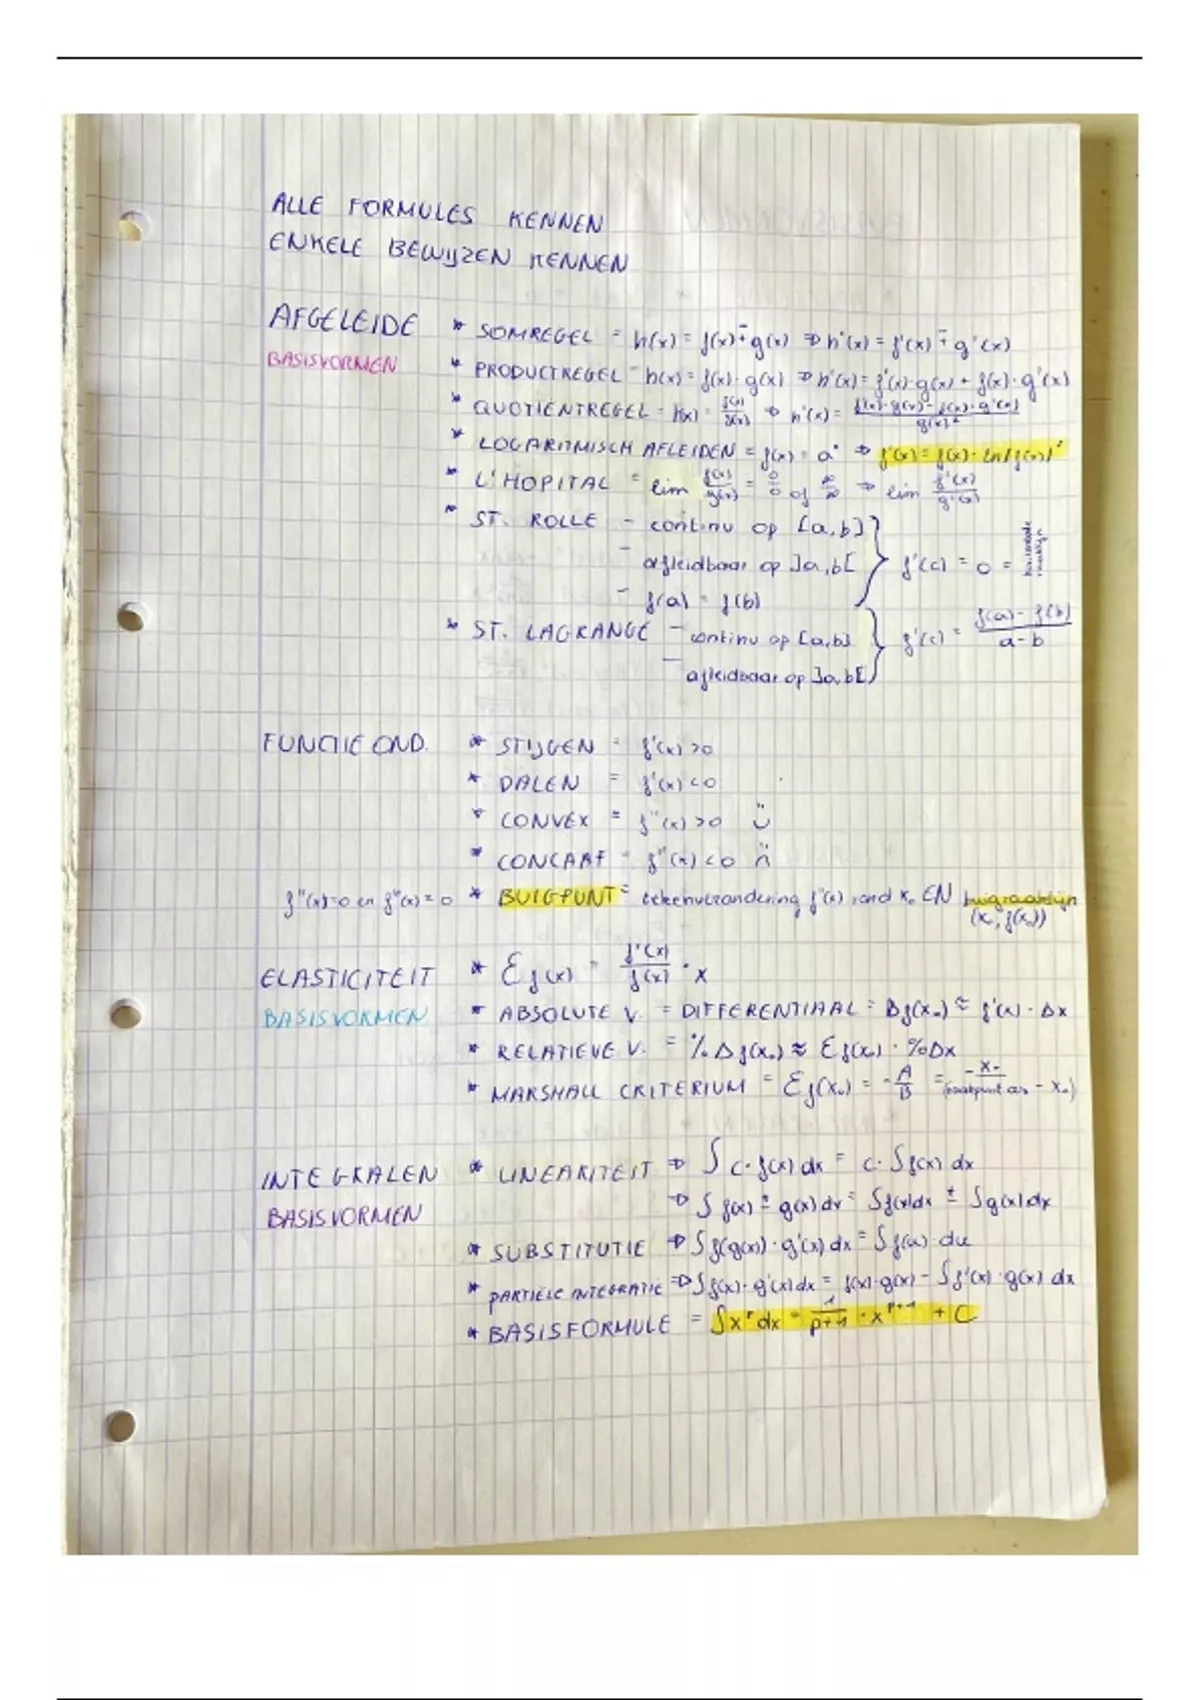 ALLE FORMULES KENNEN
ENKELE BEWIJZEN KENNEN
AFGELEIDE * SOMREGEL = h(x) = f(x) ∓ g(x) ⇒ h'(x) = f'(x) ∓ g'(x)
BASISVORMEN * PRODUCTREGEL = h(x) = f(x)·g(x) ⇒ h'(x) = f'(x)·g(x) + f(x)·g'(x)
* QUOTIENTREGEL = h(x) = f(x)/g(x) ⇒ h'(x) = f'(x)·g(x) - f(x)·g'(x) / g(x)²
* LOGARITMISCH AFLEIDEN = f(x) = aˣ ⇒ f'(x) = f(x)·ln(f(x))'
* L'HOPITAL = lim f(x)/g(x) = 0/0 of ∞/∞ ⇒ lim f'(x)/g'(x)
* ST. ROLLE - continu op [a,b]
- afleidbaar op ]a,b[ } f'(c) = 0 = horizontale raaklijn
- f(a) = f(b)
* ST. LAGRANGE - continu op [a,b] } f'(c) = f(a) - f(b) / a - b
- afleidbaar op ]a,b[
FUNCTIE OND. * STIJGEN = f'(x) >0
* DALEN = f'(x) <0
* CONVEX = f''(x) >0 ∪
* CONCAAF = f''(x) <0 ∩
f''(x)=0 en f''(x)=0 * BUIGPUNT = tekenverandering f''(x) rond x₀ EN buigraaklijn
(x₀, f(x₀))
ELASTICITEIT * Ɛf(x) = f'(x)/f(x) · x
BASISVORMEN * ABSOLUTE V. = DIFFERENTIAAL = Δf(x₀) ≈ f'(x)·Δx
* RELATIEVE V. = %Δf(x₀) ≈ Ɛf(x₀) · %Δx
* MARSHALL CRITERIUM = Ɛf(x₀) = -A/B = -x₀ / (- x₀)
INTEGRALEN * LINEARITEIT ⇒ ∫ c·f(x) dx = c·∫f(x) dx
BASISVORMEN ⇒ ∫ f(x) ± g(x) dx = ∫f(x)dx ± ∫g(x)dx
* SUBSTITUTIE ⇒ ∫f(g(x))·g'(x) dx = ∫f(u)·du
* PARTIËLE INTEGRATIE ⇒ ∫f(x)·g'(x)dx = f(x)·g(x) - ∫f'(x)·g(x) dx
* BASISFORMULE = ∫xᵖdx = 1/p+1 · xᵖ⁺¹ + C